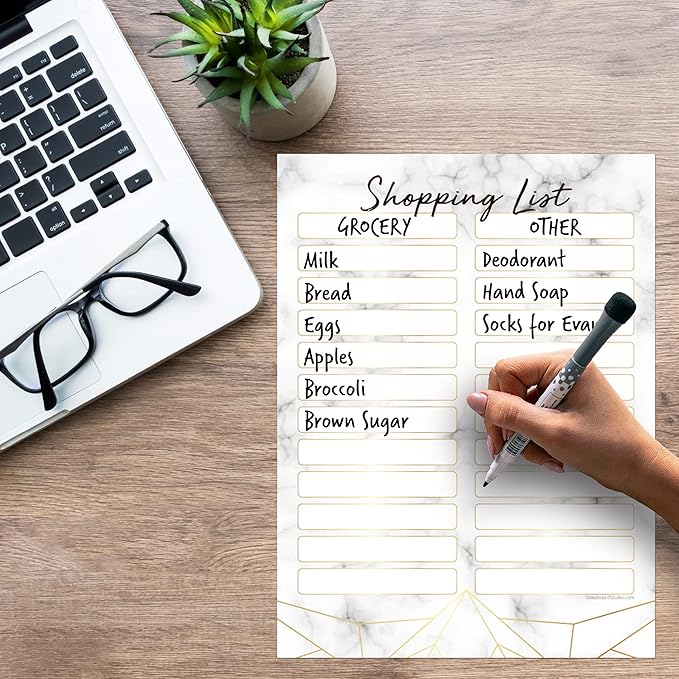 Shopping List
GROCERY
OTHER
Milk
Bread
Eggs
Apples
Broccoli
Brown Sugar
Deodorant
Hand Soap
Socks for Evan
GlassboardStudio.com
delete
enter
return
shift
option